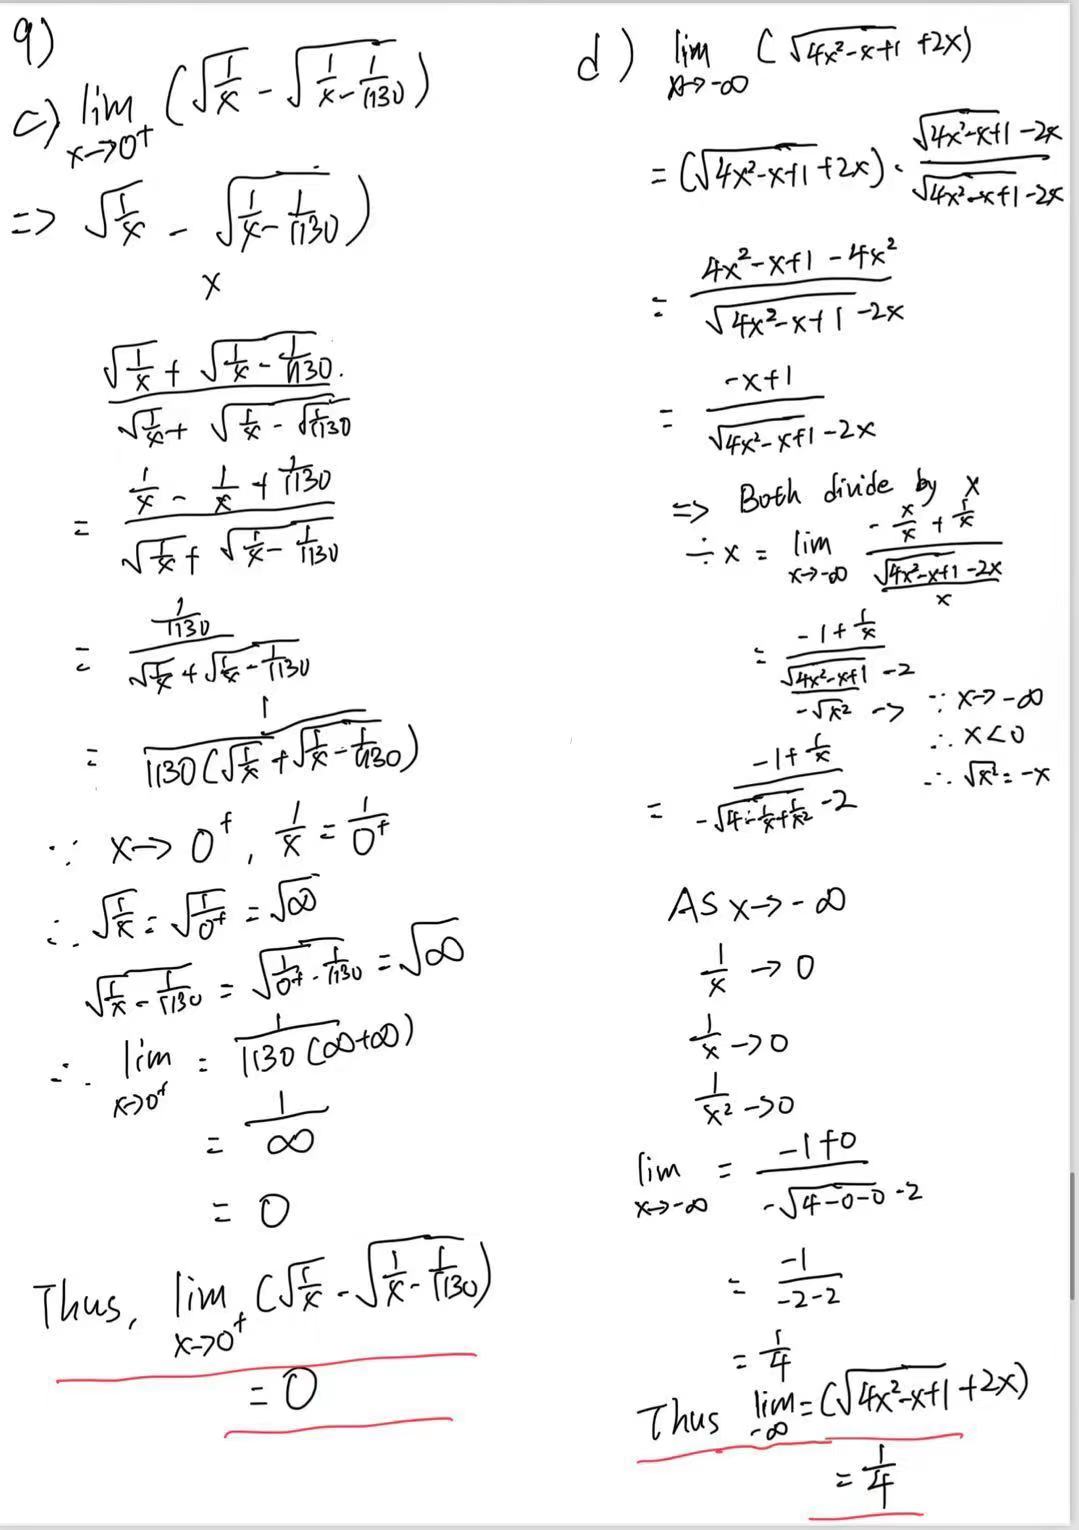 9)
c) lim x→0+ (√(1/x) - √(1/x - 1/1130))
=> √(1/x) - √(1/x - 1/1130))
×
(√(1/x) + √(1/x - 1/1130).) / (√(1/x) + √(1/x) - √(1/1130))
= (1/x - 1/x + 1/1130) / (√(1/x) + √(1/x - 1/1130))
= (1/1130) / (√(1/x) + √(1/x - 1/1130))
= 1 / (1130(√(1/x) + √(1/x - 1/1130)))
∵ x→0+, 1/x = 1/0+
∴ √(1/x) = √(1/0+) = √∞
√(1/x - 1/1130) = √(1/0+ - 1/1130) = √∞
∴ lim x→0+ = 1/(1130(∞+∞))
= 1/∞
= 0
Thus, lim x→0+ (√(1/x) - √(1/x - 1/1130))
= 0
d) lim x→-∞ (√(4x²-x+1) +2x)
= (√(4x²-x+1) +2x) · (√(4x²-x+1) -2x)/(√(4x²-x+1) -2x)
= (4x²-x+1 - 4x²)/(√(4x²-x+1) -2x)
= (-x+1)/(√(4x²-x+1) -2x)
=> Both divide by x
÷x = lim x→-∞ (-x/x + 1/x)/((√(4x²-x+1) -2x)/x)
= (-1 + 1/x)/(√(4x²-x+1)/(-√x²) -2) -> ∵ x→-∞
∴ x<0
∴ √x² = -x
= (-1 + 1/x)/(-√(4 - 1/x + 1/x²) -2)
As x→-∞
1/x →0
1/x →0
1/x² →0
lim x→-∞ = (-1+0)/(-√(4-0-0) -2)
= -1/(-2-2)
= 1/4
Thus lim -∞ = (√(4x²-x+1) +2x)
= 1/4